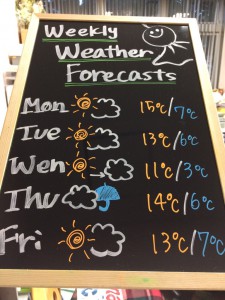 Weekly
Weather
Forecasts
Mon 15℃/7℃
Tue 13℃/6℃
Wen 11℃/3℃
Thu 14℃/6℃
Fri 13℃/7℃